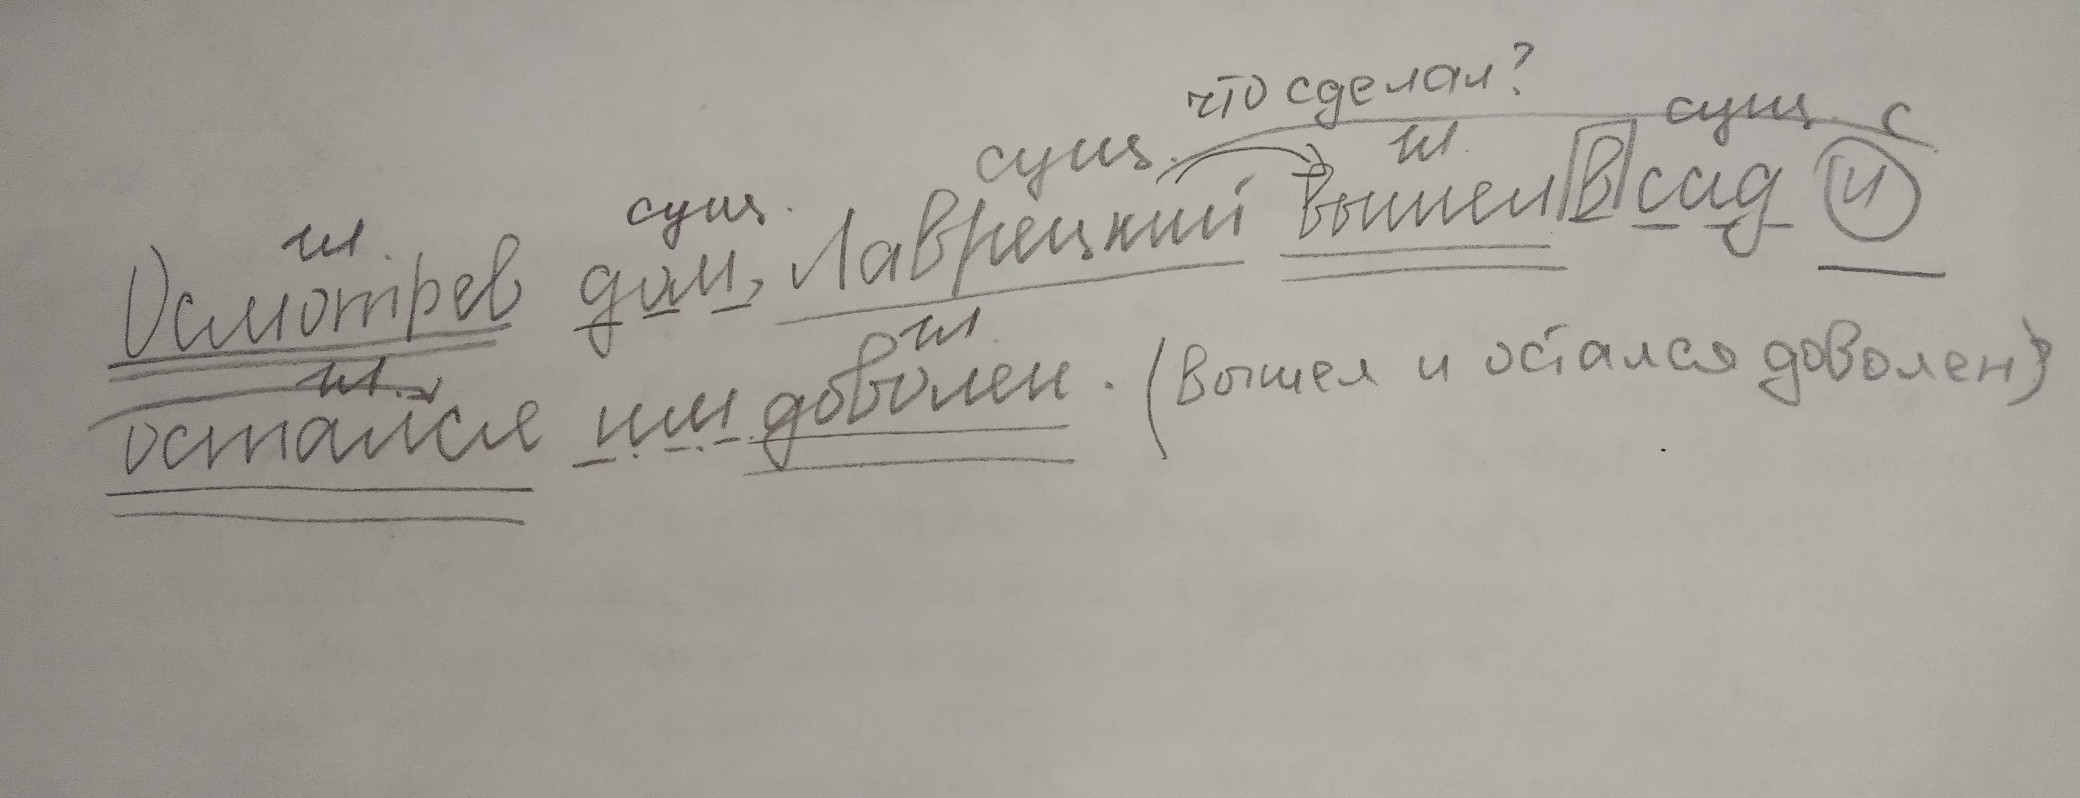 что сделал?
сущ. гл. сущ. с
гл. сущ.
Осмотрев дом, Лаврецкий вышел в сад и
гл. гл.
остался им доволен. (вышел и остался доволен)